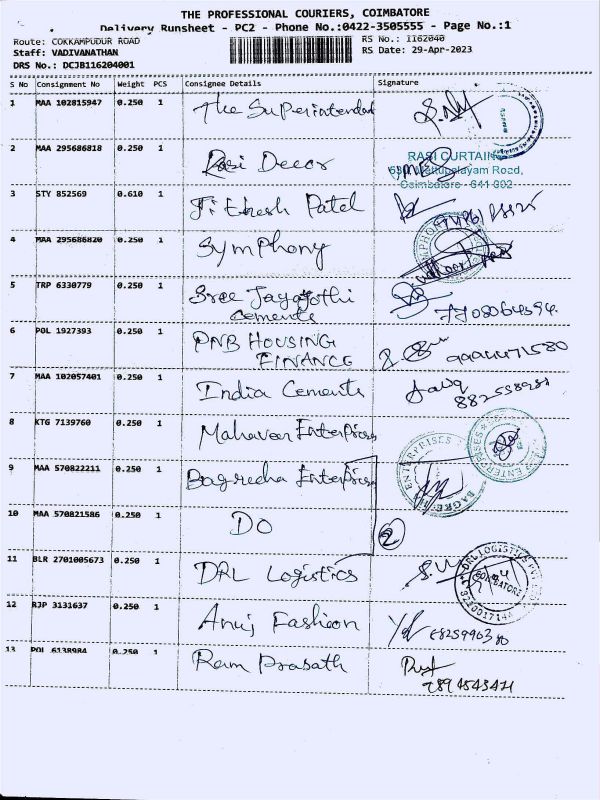 THE PROFESSIONAL COURIERS, COIMBATORE
Delivery Runsheet - PC2 - Phone No.:0422-3505555 - Page No.:1
Route: COKKAMPUDUR ROAD
RS No.: 1162040
Staff: VADIVANATHAN
RS Date: 29-Apr-2023
DRS No.: DCJB116204001
S No Consignment No Weight PCS Consignee Details Signature
1 MAA 102815947 0.250 1 The Superintendent
2 MAA 295686818 0.250 1 Rasi Decor
RASI CURTAINS
Mettupalayam Road,
Coimbatore - 641 002
3 STY 852569 0.610 1 Jitesh Patel
4 MAA 295686820 0.250 1 Symphony
5 TRP 6330779 0.250 1 Sree Jayajothi
Cements
6 POL 1927393 0.250 1 PNB HOUSING
FINANCE
7 MAA 102057401 0.250 1 India Cements
8 KTG 7139760 0.250 1 Mahaveer Enterprises
9 MAA 570822211 0.250 1 Bagrecha Enterprises
ENTERPRISES
10 MAA 570821586 0.250 1 DO
2
11 BLR 2701005673 0.250 1 DRL Logistics
DRL LOGISTICS
COIMBATORE
12 RJP 3131637 0.250 1 Anuj Fashion
13 POL 6138984 0.250 1 Ram Prasath